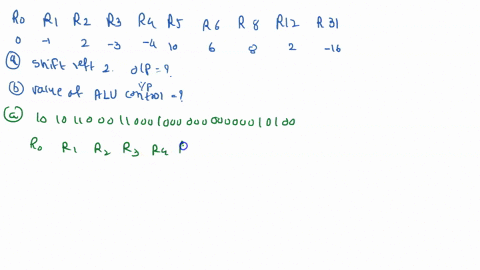 R0 R1 R2 R3 R4 R5 R6 R8 R12 R31
0 -1 2 -3 -4 10 6 8 2 -16
(a) shift left 2. O/P = ?
(b) value of ALU control I/P = ?
(a) 10 10 11 000 11 000 1000 000 0000000 10100
R0 R1 R2 R3 R4 R